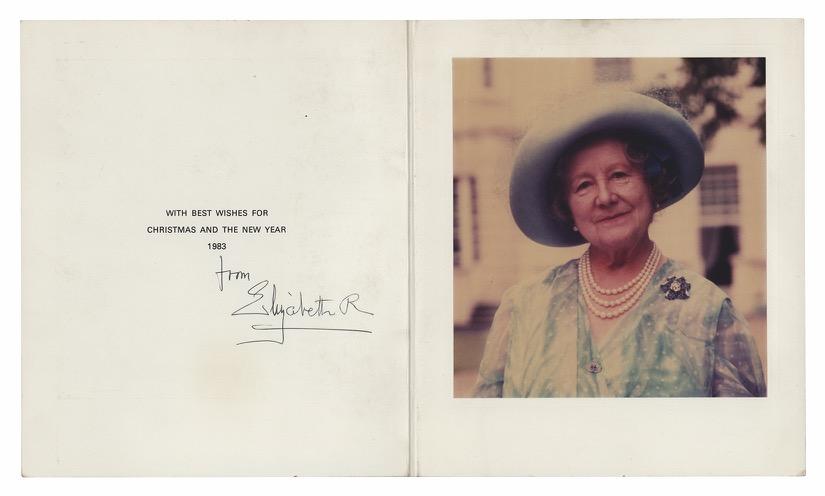 WITH BEST WISHES FOR
CHRISTMAS AND THE NEW YEAR
1983
from
Elizabeth R